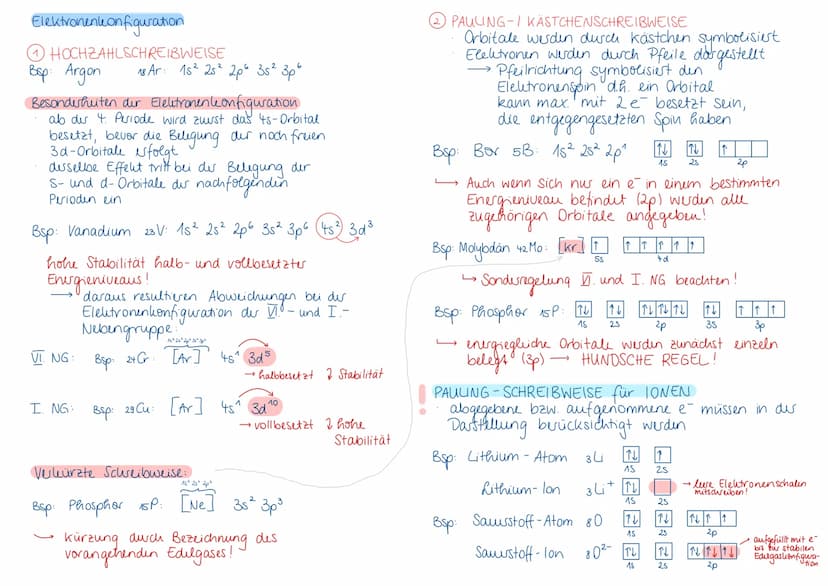 Elektronenkonfiguration
① HOCHZAHLSCHREIBWEISE
Bsp: Argon ₁₈Ar: 1s² 2s² 2p⁶ 3s² 3p⁶
Besonderheiten der Elektronenkonfiguration
· ab der 4. Periode wird zuerst das 4s-Orbital
besetzt, bevor die Belegung der noch freien
3d-Orbitale erfolgt
· desselbe Effekt tritt bei der Belegung der
s- und d-Orbitale der nachfolgenden
Perioden ein
Bsp: Vanadium ₂₃V: 1s² 2s² 2p⁶ 3s² 3p⁶ 4s² 3d³
hohe Stabilität halb- und vollbesetzter
Energieniveaus!
→ daraus resultieren Abweichungen bei der
Elektronenkonfiguration der VI.- und I.-
Nebengruppe:
1s²2s²2p⁶3s²3p⁶
VI NG: Bsp: ₂₄Cr: [Ar] 4s¹ 3d⁵
→ halbbesetzt ↓ Stabilität
I. NG: Bsp: ₂₉Cu: [Ar] 4s¹ 3d¹⁰
→ vollbesetzt ↓ hohe
Stabilität
Verkürzte Schreibweise:
1s² 2s² 2p⁶
Bsp: Phosphor ₁₅P: [Ne] 3s² 3p³
↳ kürzung durch Bezeichnung des
vorangehenden Edelgases!
② PAULING-/ KÄSTCHENSCHREIBWEISE
· Orbitale werden durch kästchen symbolisiert
· Elektronen werden durch Pfeile dargestellt
→ Pfeilrichtung symbolisiert den
Elektronenspin d.h. ein Orbital
kann max. mit 2 e⁻ besetzt sein,
die entgegengesetzten Spin haben
Bsp: Bor ₅B: 1s² 2s² 2p¹ ↑↓ ↑↓ ↑
1s 2s 2p
↳ Auch wenn sich nur ein e⁻ in einem bestimmten
Energieniveau befindet (2p) werden alle
zugehörigen Orbitale angegeben!
Bsp: Molybdän ₄₂Mo: [kr] ↑ ↑ ↑ ↑ ↑ ↑
5s 4d
↳ Sonderregelung VI. und I. NG beachten!
Bsp: Phosphor ₁₅P: ↑↓ ↑↓ ↑↓ ↑↓ ↑↓ ↑↓ ↑ ↑ ↑
1s 2s 2p 3s 3p
↳ energiegleiche Orbitale werden zunächst einzeln
belegt (3p) → HUNDSCHE REGEL!
! PAULING-SCHREIBWEISE für IONEN
· abgegebene bzw. aufgenommene e⁻ müssen in der
Darstellung berücksichtigt werden
Bsp: Lithium-Atom ₃Li ↑↓ ↑
1s 2s
Lithium-Ion ₃Li⁺ ↑↓ → leere Elektronenschalen
mitschreiben!
1s 2s
Bsp: Sauerstoff-Atom ₈O ↑↓ ↑↓ ↑↓ ↑ ↑
1s 2s 2p
Sauerstoff-Ion ₈O²⁻ ↑↓ ↑↓ ↑↓ ↑↓ ↑↓
1s 2s 2p
→ aufgefüllt mit e⁻
bis zur stabilen
Edelgaskonfigura-
tion